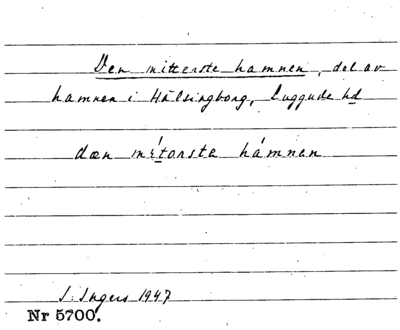 Den mitterste hamnen, del av
hamnen i Hälsingborg, Luggude hd
dæn mítorsta hámnen
I. Ingers 1947
Nr 5700.